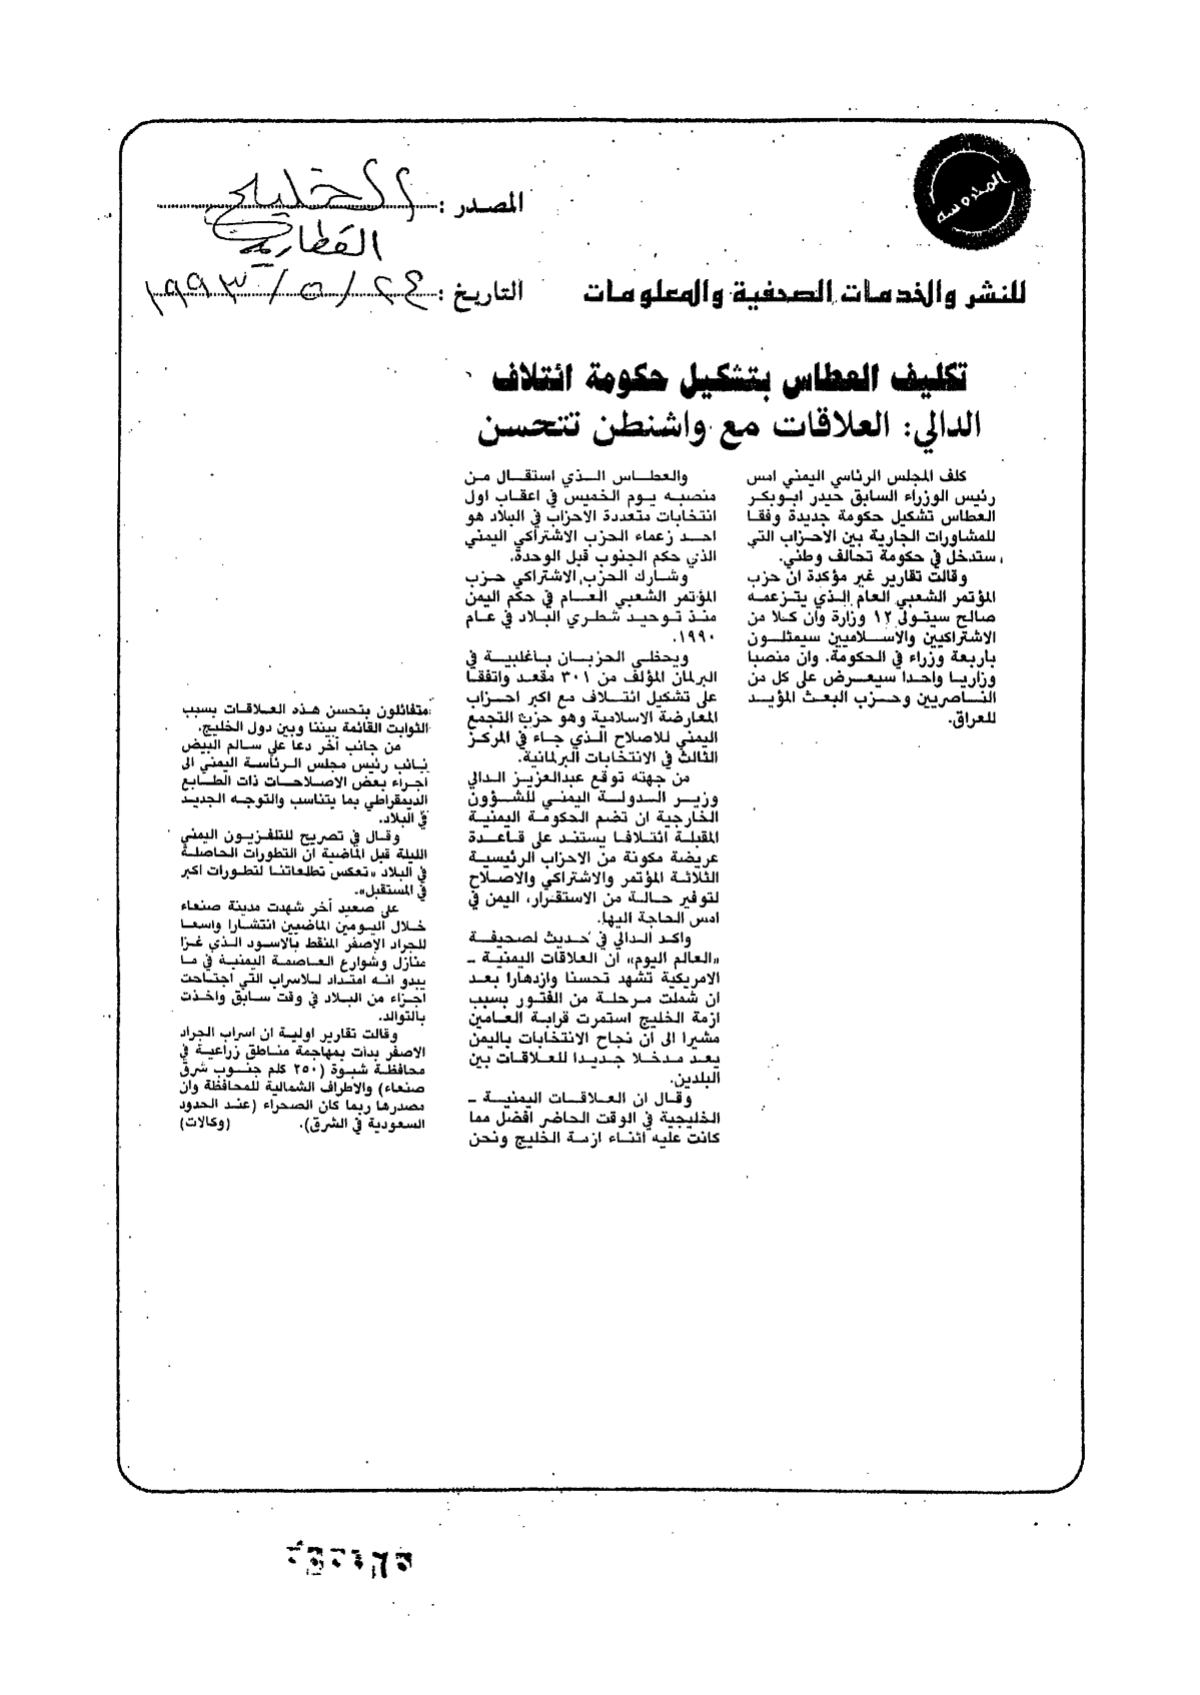 المدوسه
المصدر: الخليج
القطرية
للنشر والخدمات الصحفية والمعلومات
التاريخ: ٢٤ / ٥ / ١٩٩٣
تكليف العطاس بتشكيل حكومة ائتلاف
الدالي: العلاقات مع واشنطن تتحسن
كلف المجلس الرئاسي اليمني امس
رئيس الوزراء السابق حيدر ابوبكر
العطاس تشكيل حكومة جديدة وفقا
للمشاورات الجارية بين الاحزاب التي
ستدخل في حكومة تحالف وطني.
وقالت تقارير غير مؤكدة ان حزب
المؤتمر الشعبي العام الذي يتزعمه
صالح سيتولى ١٢ وزارة وان كلا من
الاشتراكيين والاسلاميين سيمثلون
باربعة وزراء في الحكومة، وان منصبا
وزاريا واحدا سيعرض على كل من
الناصريين وحزب البعث المؤيد
للعراق.
والعطاس الذي استقال من
منصبه يوم الخميس في اعقاب اول
انتخابات متعددة الاحزاب في البلاد هو
احد زعماء الحزب الاشتراكي اليمني
الذي حكم الجنوب قبل الوحدة.
وشارك الحزب الاشتراكي حزب
المؤتمر الشعبي العام في حكم اليمن
منذ توحيد شطري البلاد في عام
١٩٩٠.
ويحظى الحزبان بأغلبية في
البرلمان المؤلف من ٣٠١ مقعد واتفقا
على تشكيل ائتلاف مع اكبر احزاب
المعارضة الاسلامية وهو حزب التجمع
اليمني للاصلاح الذي جاء في المركز
الثالث في الانتخابات البرلمانية.
من جهته توقع عبدالعزيز الدالي
وزير الدولة اليمني للشؤون
الخارجية ان تضم الحكومة اليمنية
المقبلة ائتلافا يستند على قاعدة
عريضة مكونة من الاحزاب الرئيسية
الثلاثة المؤتمر والاشتراكي والاصلاح
لتوفير حالة من الاستقرار، اليمن في
امس الحاجة اليها.
واكد الدالي في حديث لصحيفة
«العالم اليوم» ان العلاقات اليمنية ـ
الامريكية تشهد تحسنا وازدهارا بعد
ان شملت مرحلة من الفتور بسبب
ازمة الخليج استمرت قرابة العامين
مشيرا الى ان نجاح الانتخابات باليمن
يعد مدخلا جديدا للعلاقات بين
البلدين.
وقال ان العلاقات اليمنية ـ
الخليجية في الوقت الحاضر افضل مما
كانت عليه اثناء ازمة الخليج ونحن
متفائلون بتحسن هذه العلاقات بسبب
الثوابت القائمة بيننا وبين دول الخليج.
من جانب آخر دعا على سالم البيض
نائب رئيس مجلس الرئاسة اليمني الى
اجراء بعض الاصلاحات ذات الطابع
الديمقراطي بما يتناسب والتوجه الجديد
في البلاد.
وقال في تصريح للتلفزيون اليمني
الليلة قبل الماضية ان التطورات الحاصلة
في البلاد «تعكس تطلعاتنا لتطورات اكبر
في المستقبل».
على صعيد آخر شهدت مدينة صنعاء
خلال اليومين الماضيين انتشارا واسعا
للجراد الاصفر المنقط بالاسود الذي غزا
منازل وشوارع العاصمة اليمنية في ما
يبدو انه امتداد للاسراب التي اجتاحت
اجزاء من البلاد في وقت سابق واخذت
بالتوالد.
وقالت تقارير اولية ان اسراب الجراد
الاصفر بدات بمهاجمة مناطق زراعية في
محافظة شبوة (٢٥٠ كلم جنوب شرق
صنعاء) والاطراف الشمالية للمحافظة وان
مصدرها ربما كان الصحراء (عند الحدود
السعودية في الشرق). (وكالات)